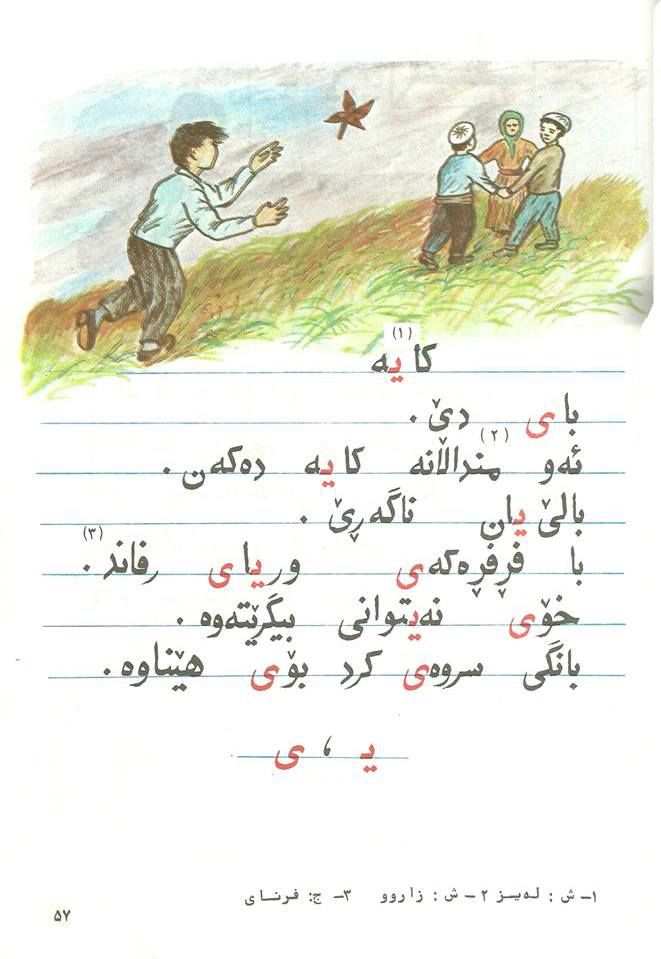 کایە (١)
بای دێ.
ئەو منداڵانە (٢) کایە دەکەن.
بالێیان ناگەڕێ.
با فڕفڕەکەی وریای رفاند (٣).
خۆی نەیتوانی بیگرێتەوە.
بانگی سروەی کرد بۆی هێناوە.
یـ ، ی
١- ش : لەیـز ٢- ش : زاروو ٣- ج: فرنـای
۵٧